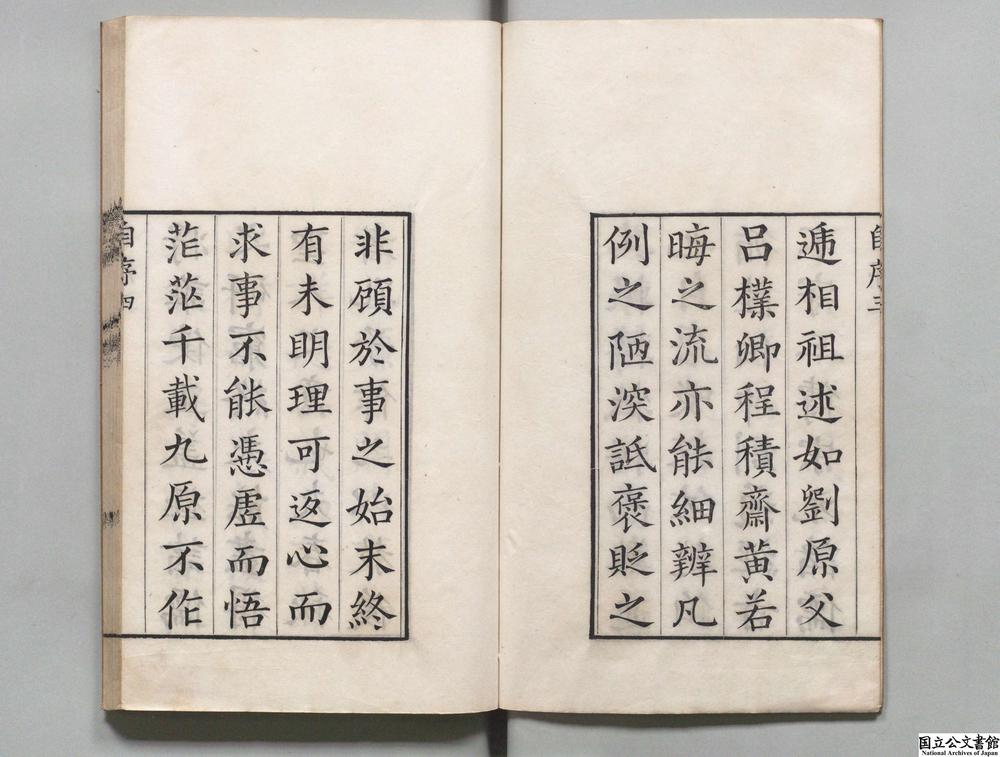 自序三
遞相祖述如劉原父
呂樸卿程積齋黃若
晦之流亦能細辨凡
例之陋深詆褒貶之
非顧於事之始末終
有未明理可返心而
求事不能憑虛而悟
茫茫千載九原不作
自序四
国立公文書館
National Archives of Japan